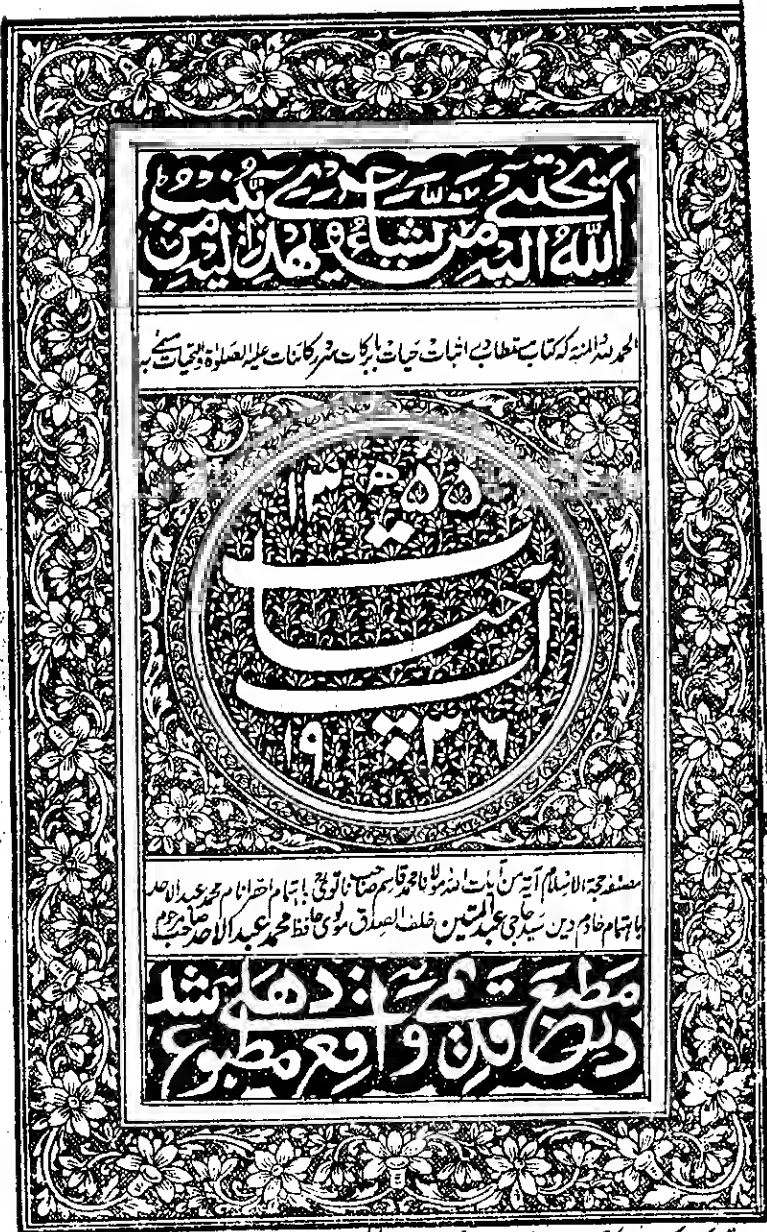 اللّٰهُ يَجْتَبِيٓ اِلَيْهِ مَنْ يَّشَآءُ وَيَهْدِيٓ اِلَيْهِ مَنْ يُّنِيْبُ
الحمد للہ والمنہ کہ کتاب مستطاب در اثبات حیات بابرکات سرور کائنات علیہ الصلوٰۃ والتحیات مسمےٰ بہ
۱۳۵۵ھ
آب حیات
۱۹۳۶
مصنفہ حجۃ الاسلام آیۃ من آیات اللہ مولانا محمد قاسم صاحب نانوتوی باہتمام احقر انام محمد عبد الاحد
باہتمام خادم دین سید حاجی عبد المتین خلف الصدق مولوی حافظ محمد عبد الاحد صاحب مرحوم
در مطبع قدیمی واقع دھلی مطبوع شد